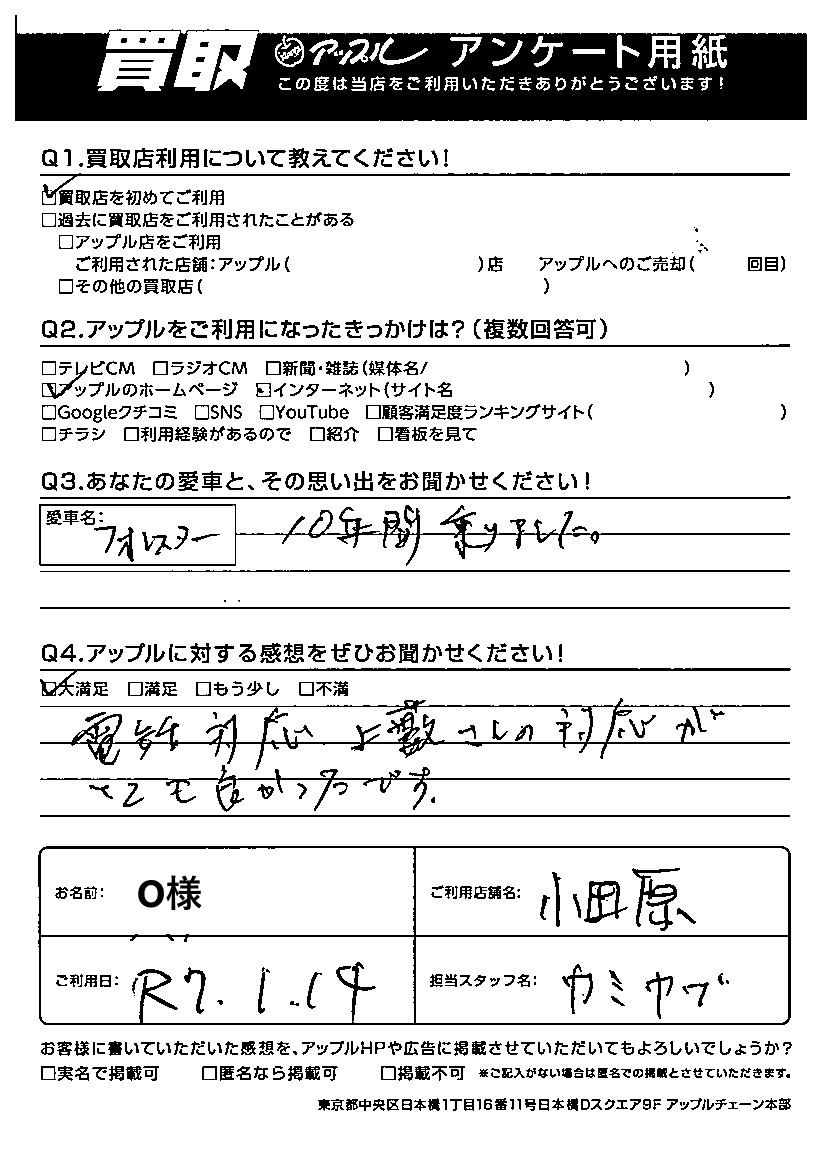 買取 アップル アンケート用紙
この度は当店をご利用いただきありがとうございます!
Q1.買取店利用について教えてください!
☑買取店を初めてご利用
□過去に買取店をご利用されたことがある
□アップル店をご利用
ご利用された店舗:アップル( )店 アップルへのご売却( 回目)
□その他の買取店( )
Q2.アップルをご利用になったきっかけは?(複数回答可)
□テレビCM □ラジオCM □新聞・雑誌(媒体名/ )
☑アップルのホームページ □インターネット(サイト名 )
□Googleクチコミ □SNS □YouTube □顧客満足度ランキングサイト( )
□チラシ □利用経験があるので □紹介 □看板を見て
Q3.あなたの愛車と、その思い出をお聞かせください!
愛車名: フォレスター 10年間乗りました。
Q4.アップルに対する感想をぜひお聞かせください!
☑大満足 □満足 □もう少し □不満
電話対応 上藪さんの対応が
とても良かったです。
お名前: O様 ご利用店舗名: 小田原
ご利用日: R7.1.14 担当スタッフ名: カミヤブ
お客様に書いていただいた感想を、アップルHPや広告に掲載させていただいてもよろしいでしょうか?
□実名で掲載可 □匿名なら掲載可 □掲載不可 ※ご記入がない場合は匿名での掲載とさせていただきます。
東京都中央区日本橋1丁目16番11号日本橋Dスクエア9F アップルチェーン本部